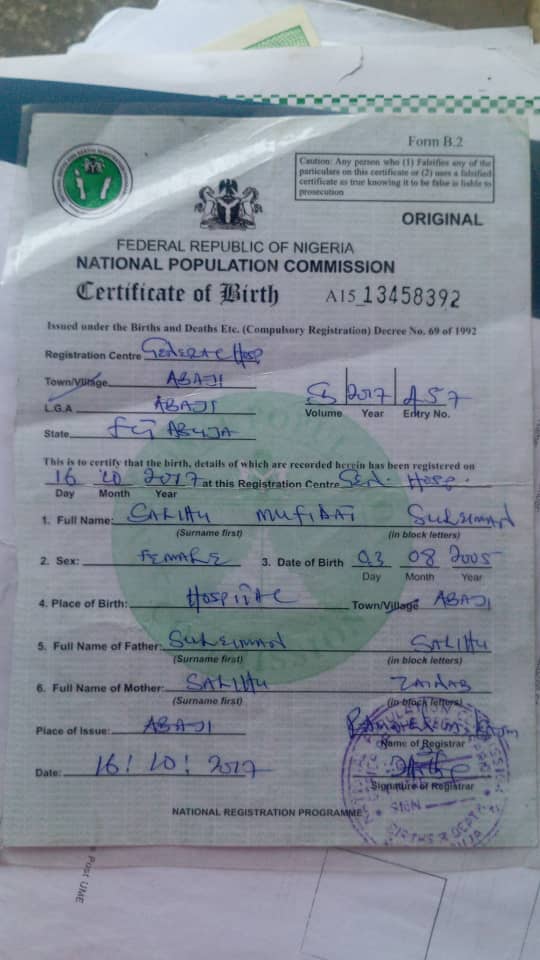 Form B.2
Caution: Any person who (1) Falsifies any of the
particulars on this certificate or (2) uses a falsified
certificate as true knowing it to be false is liable to
prosecution
ORIGINAL
FEDERAL REPUBLIC OF NIGERIA
NATIONAL POPULATION COMMISSION
Certificate of Birth A15 13458392
Issued under the Births and Deaths Etc. (Compulsory Registration) Decree No. 69 of 1992
Registration Centre General Hosp
Town/Village ABAJI
L.G.A ABAJI 2017 457
Volume Year Entry No.
State FCT ABUJA
This is to certify that the birth, details of which are recorded herein has been registered on
16 10 2017 at this Registration Centre Gen. Hosp.
Day Month Year
1. Full Name: SALIHU MUFIDAT SULEIMAN
(Surname first) (in block letters)
2. Sex: FEMALE 3. Date of Birth 03 08 2005
Day Month Year
4. Place of Birth: HOSPITAL Town/Village ABAJI
5. Full Name of Father: SULEIMAN SALIHU
(Surname first) (in block letters)
6. Full Name of Mother: SALIHU ZAINAB
(Surname first) (in block letters)
Place of Issue: ABAJI
Name of Registrar
Date: 16/10/2017
Signature of Registrar
SIGN
NATIONAL REGISTRATION PROGRAMME
Post UME